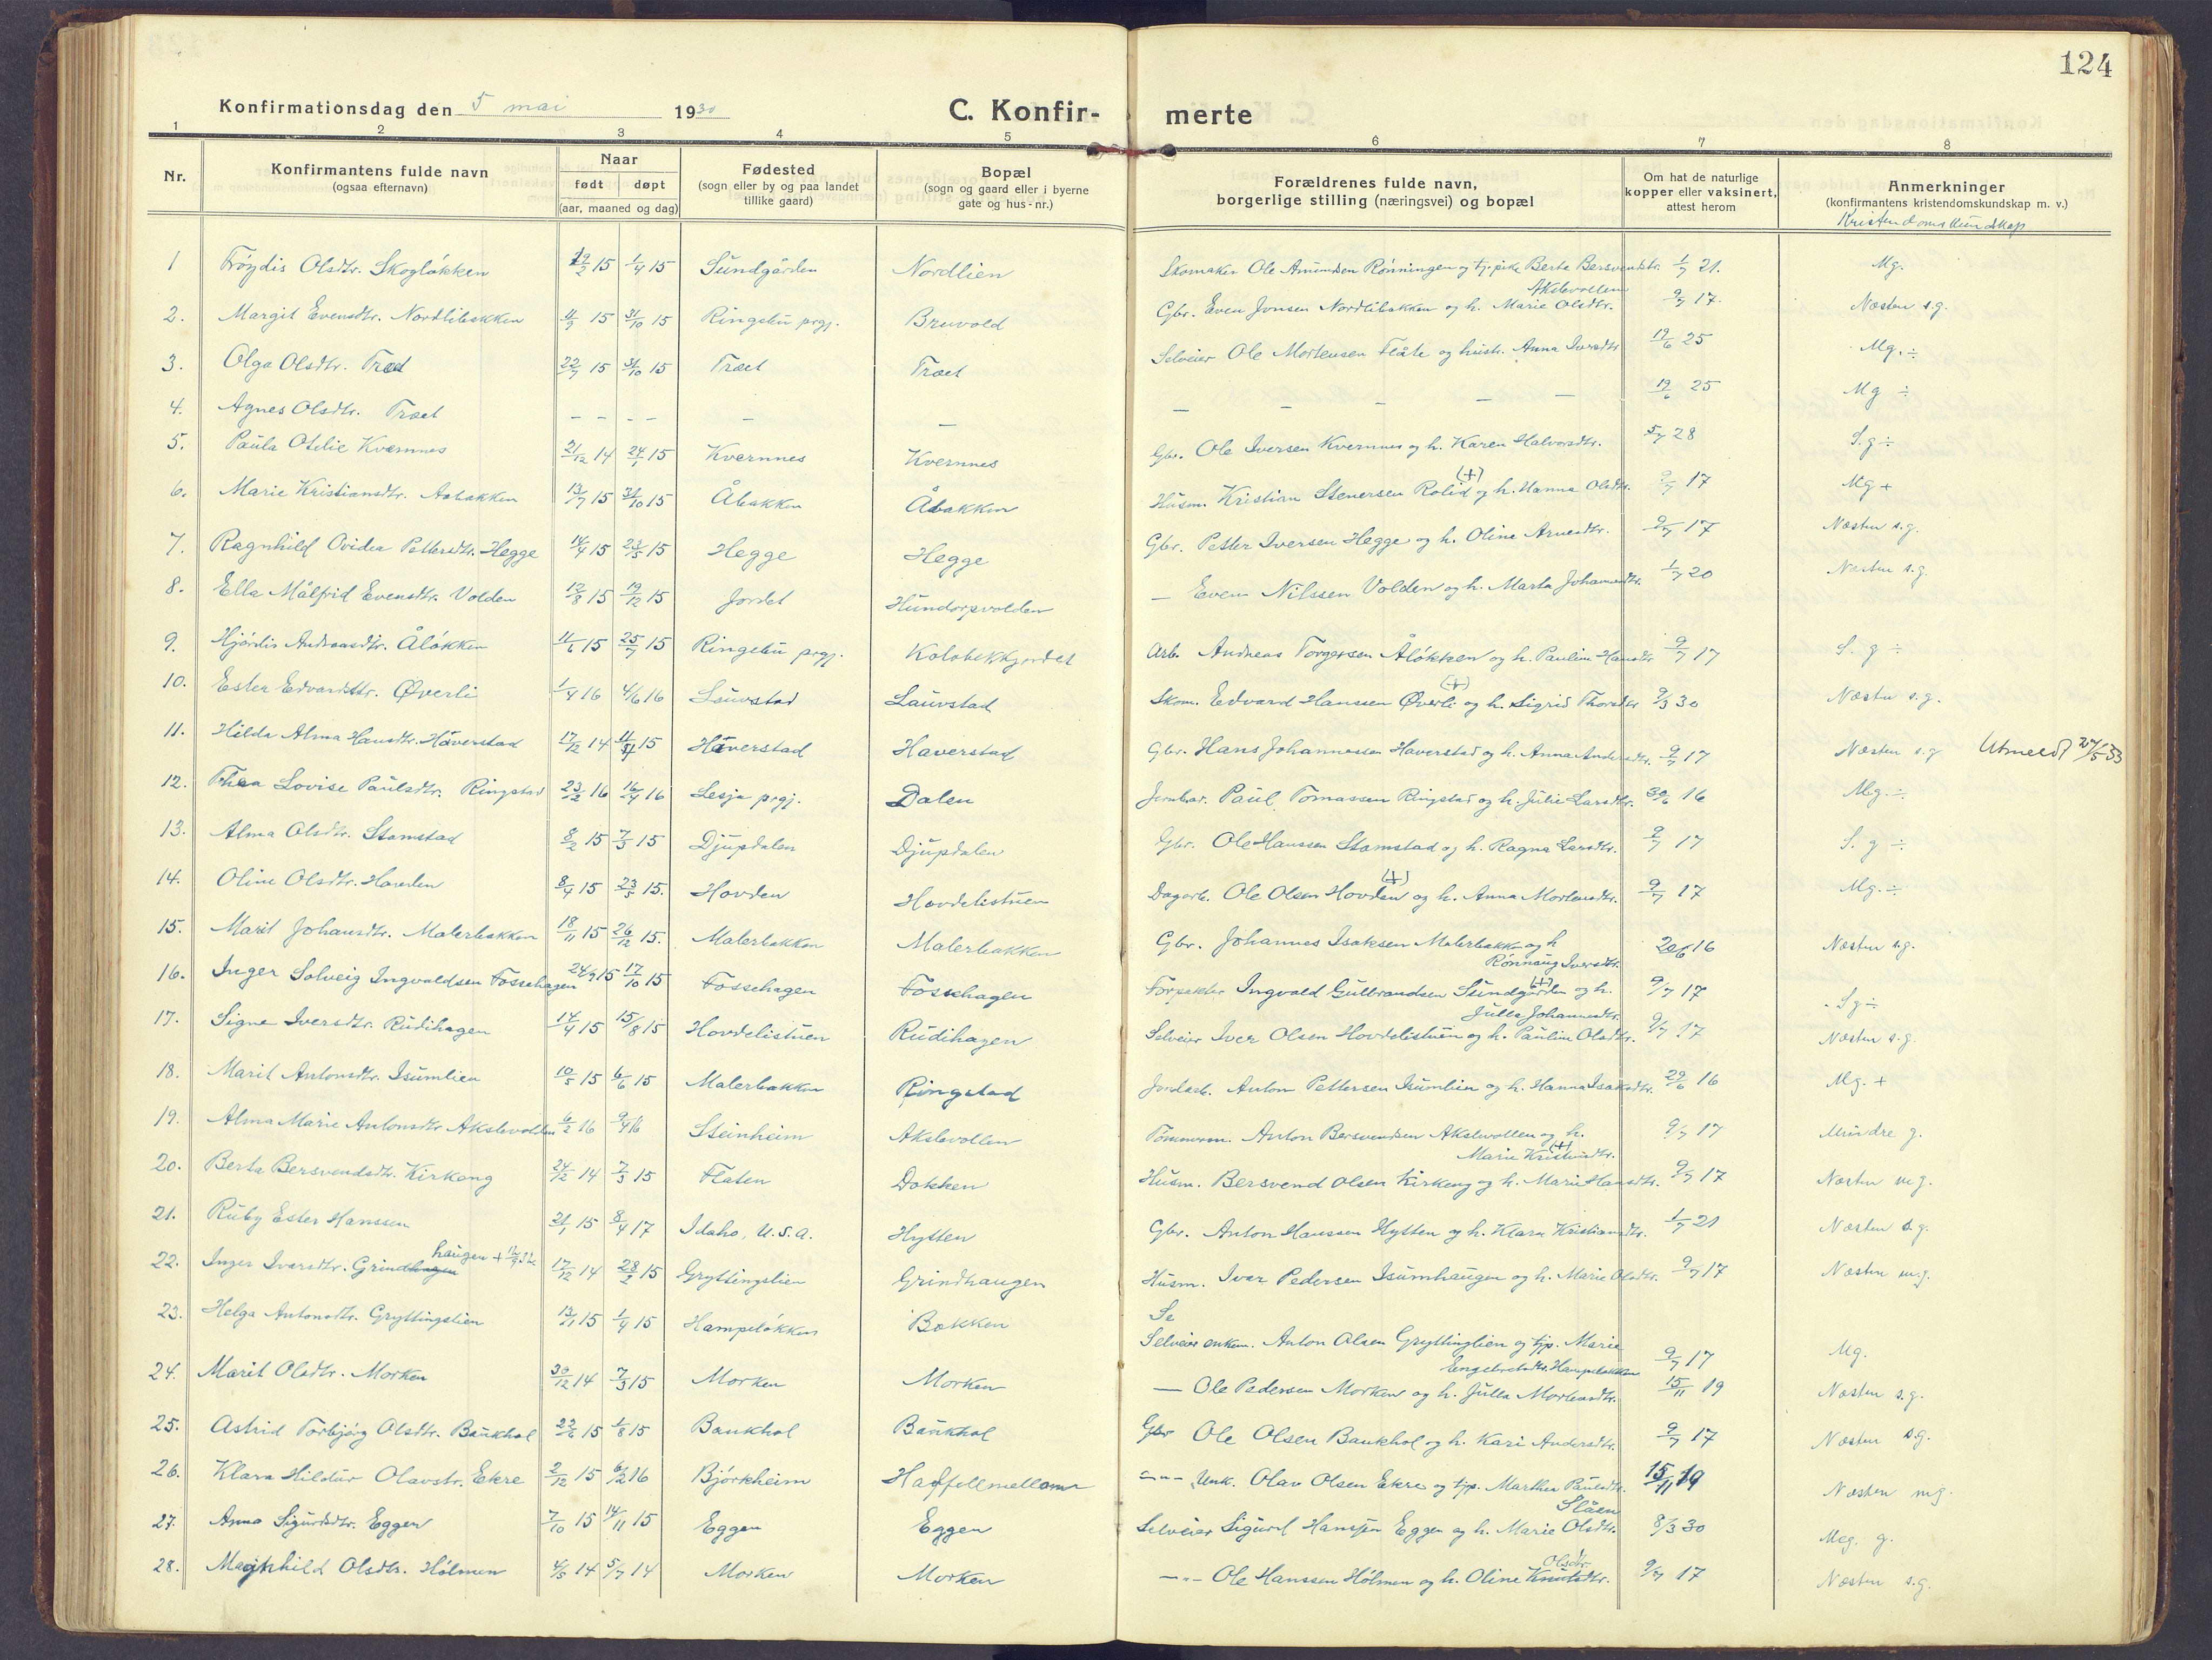 124
Konfirmationsdag den 5 mai 1930
C. Konfirmerte
1 2 3 4 5 6 7 8
Nr. | Konfirmantens fulde navn (ogsaa efternavn) | Naar født døpt (aar, maaned og dag) | Fødested (sogn eller by og paa landet tillike gaard) | Bopæl (sogn og gaard eller i byerne gate og hus-nr.) | Forældrenes fulde navn, borgerlige stilling (næringsvei) og bopæl | Om hat de naturlige kopper eller vaksinert, attest herom | Anmerkninger (konfirmantens kristendomskundskap m. v.) Kristendomskundskap
1 Frøydis Olsdtr. Skogløkken 19/2 15 1/4 15 Sundgården Nordlien Skomaker Ole Amundsen Rønningen og tj. pike Berte Bersvendstr. 1/7 21. Mg.
Akslevollen
2. Margit Evensdtr. Nordlibakken 11/9 15 31/10 15 Ringebu prgj. Bruvold Gbr. Even Jonsen Nordlibakken og h. Marie Olsdtr. 9/7 17. Næsten s.g.
3. Olga Olsdtr. Træet 22/7 15 31/10 15 Træet Træet Selveier Ole Mortensen Flåte og hustr. Anna Iversdtr 19/6 25 Mg. ÷
4. Agnes Olsdtr. Træet – – – – – – – – – – – 19/6 25 Mg ÷
5. Paula Otilie Kvernnes 21/12 14 24/1 15 Kvernnes Kvernnes Gbr. Ole Iversen Kvernnes og h. Karen Halvorsdtr. 5/7 28 S.g ÷
6. Marie Kristiansdtr. Aabakken 13/7 15 31/10 15 Åbakken Åbakken Husm. Kristian Stenersen Rolid (+) og h. Hanna Olsdtr. 9/7 17 Mg +
7. Ragnhild Ovidea Pettersdtr. Hegge 14/4 15 23/5 15 Hegge Hegge Gbr. Petter Iversen Hegge og h. Oline Arnesdtr. 9/7 17 Næsten s.g.
8. Ella Målfrid Evensdtr. Volden 12/8 15 19/12 15 Jordet Hundorpvolden — Even Nilssen Volden og h. Marta Johannesdtr. 1/7 20 Næsten s.g.
9. Hjørdis Andreasdtr. Åløkken 11/6 15 25/7 15 Ringebu prgj. Kolobekkjordet Arb. Andreas Torgersen Åløkken og h. Pauline Hansdtr 9/7 17 S. g ÷
10. Ester Edvardsdtr. Øverli 1/4 16 4/6 16 Lauvstad Lauvstad Skom. Edvard Hanssen Øverli (+) og h. Sigrid Thorsdtr 9/3 30 Næsten s.g.
11. Hilda Alma Hansdtr. Håverstad 17/12 14 15 Håverstad Haverstad Gbr. Hans Johannessen Haverstad og h. Anna Andersdtr. 9/7 17 Næsten s.g Utmeldt 27/5 33
12. Thea Lovise Paulsdtr. Ringstad 23/2 16 16/4 16 Lesja prgj. Dalen Jernbar. Paul Tomassen Ringstad og h. Julie Larsdtr. 30/6 16 Mg. ÷
13. Alma Olsdtr. Stamstad 8/2 15 7/3 15 Djupdalen Djupdalen Gbr. Ole Hanssen Stamstad og h. Ragna Larsdtr. 9/7 17 S. g ÷
14. Oline Olsdtr. Hovden 8/4 15 23/5 15. Hovden Hovdelistuen Dagarb. Ole Olsen Hovden (+) og h. Anna Mortensdtr. 9/7 17 Mg. ÷
15. Marit Johansdtr. Malerbakken 18/11 15 26/12 15. Malerbakken Malerbakken Gbr. Johannes Isaksen Malerbakken og h 20/6 16 Næsten s.g.
Rønnaug Iversdtr.
16. Inger Solveig Ingvaldsen Fossehagen 24/9 15 17/10 15 Fossehagen Fossehagen Forpakter Ingvald Gulbrandsen Sundgården (+) og h. 9/7 17 Sg ÷
Julla Johannesdtr.
17. Signe Iversdtr. Rudihagen 14/4 15 15/8 15 Hovdelistuen Rudihagen Selveier Iver Olsen Hovdelistuen og h. Pauline Olsdtr. 9/7 17 Næsten s.g.
18. Marit Antonsdtr. Isumlien 10/5 15 6/6 15 Malerbakken Ringstad Jordarb. Anton Pettersen Isumlien og h. Hanna Isaksdtr. 29/6 16 Mg. +
19. Alma Marie Antonsdtr Akslevolden 6/2 16 9/4 16 Steinheim Akslevollen Tømmerm. Anton Bersvendsen Akslevollen og h. 9/7 17 Mindre g.
Marie Kristiansdtr. (+)
20. Berta Bersvendsdtr. Kirkeng 24/12 14 7/3 15 Flaten Dokken Husm. Bersvend Olsen Kirkeng og h. Marie Hansdtr. 9/7 17 Næsten mg.
21. Ruby Ester Hanssen 21/1 15 8/4 17 Idaho, U.S.A. Hytten Gbr. Anton Hanssen Hytten og h. Klara Kristiansdtr. 1/7 21 Næsten s.g.
haugen +
22. Inger Iversdtr. Grindhagen 17/12 14 28/2 15 Gryttingslien Grindhaugen Husm. Iver Pedersen Isumhaugen og h. Marie Olsdtr. 9/7 17 Næsten mg.
Se
23. Helga Antonsdtr. Gryttingslien 13/1 15 1/4 15 Hampeløkken Bakken Selveier enkem. Anton Olsen Gryttingslien og tjp. Marie 9/7 17 Mg.
Engebretsdtr. Hampeløkken
24. Marit Olsdtr. Morken 30/12 14 7/3 15 Morken Morken — Ole Pedersen Morken og h. Julla Mortensdtr. 15/11 19 Næsten s.g.
25. Astrid Torbjørg Olsdtr. Baukhol 22/6 15 1/8 15 Baukhol Baukhol Gbr Ole Olsen Baukhol og h. Kari Andersdtr. 9/7 17 Næsten s.g.
26. Klara Hildur Olavstr. Ekre 2/12 15 6/2 16 Bjørkheim Haffellmellom –"– Unk. Olav Olsen Ekre og tjp. Marthea Paulsdtr. 15/11 19 Næsten mg.
Slåen
27. Anna Sigurdsdtr. Eggen 7/10 15 14/11 15 Eggen Eggen Selveier Sigurd Hanssen Eggen og h. Marie Olsdtr. 8/3 30 Meg. g.
Olsdtr.
28. Magnhild Olsdtr. Holmen 4/5 14 5/7 14 Morken Morken –"– Ole Hanssen Holmen og h. Oline Knutsdtr. 9/7 17 Næsten s.g.